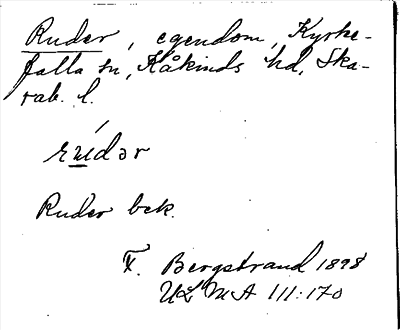 Ruder, egendom, Kyrke-
falla sn, Kåkinds hd, Ska-
rab. l.
rúdər
Ruder bek.
F. Bergstrand 1898
ULMA 111:170